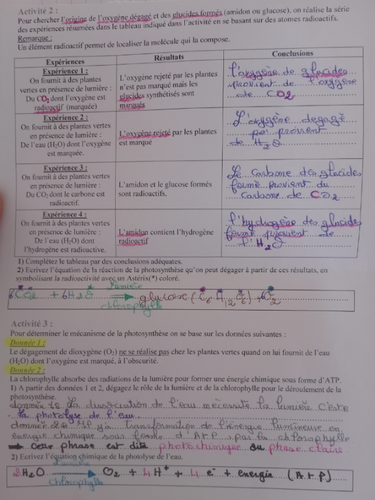 Activité 2 :
Pour chercher l'origine de l'oxygène dégagé et des glucides formés (amidon ou glucose), on réalise la série
des expériences résumées dans le tableau indiqué dans l'activité en se basant sur des atomes radioactifs.
Remarque :
Un élément radioactif permet de localiser la molécule qui la compose.
Expériences
Résultats
Conclusions
Expérience 1 :
On fournit à des plantes
vertes en présence de lumière :
Du CO2 dont l'oxygène est
radioactif (marquée)
L'oxygène rejeté par les plantes
n'est pas marqué mais les
glucides synthétisés sont
marqués
l'oxygène de glucides
provient de l'oxygène
de CO2
Expérience 2 :
On fournit à des plantes
vertes en présence de lumière :
De l'eau (H2O) dont l'oxygène
est marquée.
L'oxygène rejeté par les plantes
est marqué
L'oxygène dégagé
provient
de H2O
Expérience 3 :
On fournit à des plantes vertes
en présence de lumière :
Du CO2 dont le carbone est
radioactif
L'amidon et le glucose formés
sont radioactifs.
Le Carbone des glucides
formé provient du
Carbone de CO2
Expérience 4 :
On fournit à des plantes vertes
en présence de lumière :
De l'eau (H2O) dont
l'hydrogène est radioactive.
L'amidon contient l'hydrogène
radioactif
l'hydrogène des glucides
formé provient de
l'H2O
1) Complétez le tableau par des conclusions adéquates.
2) Ecrivez l'équation de la réaction de la photosynthèse qu'on peut dégager à partir de ces résultats, en
symbolisant la radioactivité avec un Astéris(*) coloré.
lumière
6CO2 + 6H2O glucose (C6 H12 O6) + O2
chlorophylle
Activité 3 :
Pour déterminer le mécanisme de la photosynthèse on se base sur les données suivantes :
Donnée 1 :
Le dégagement de dioxygène (O2) ne se réalise pas chez les plantes vertes quand on lui fournit de l'eau
(H2O) dont l'oxygène est marqué, à l'obscurité.
Donnée 2 :
La chlorophylle absorbe des radiations de la lumière pour former une énergie chimique sous forme d'ATP.
1) A partir des données 1 et 2, dégagez le rôle de la lumière et de la chlorophylle pour le déroulement de la
photosynthèse.
la dissociation de l'eau nécessite la lumière c'est
la photolyse de l'eau
transformation de l'énergie lumineuse en
énergie chimique sous forme d'ATP par la chlorophylle
→ cette phase est dite photochimique ou phase claire
2) Ecrivez l'équation chimique de la photolyse de l'eau.
lumière
2H2O O2 + 4H+ + 4 e- + energie (ATP)
chlorophylle